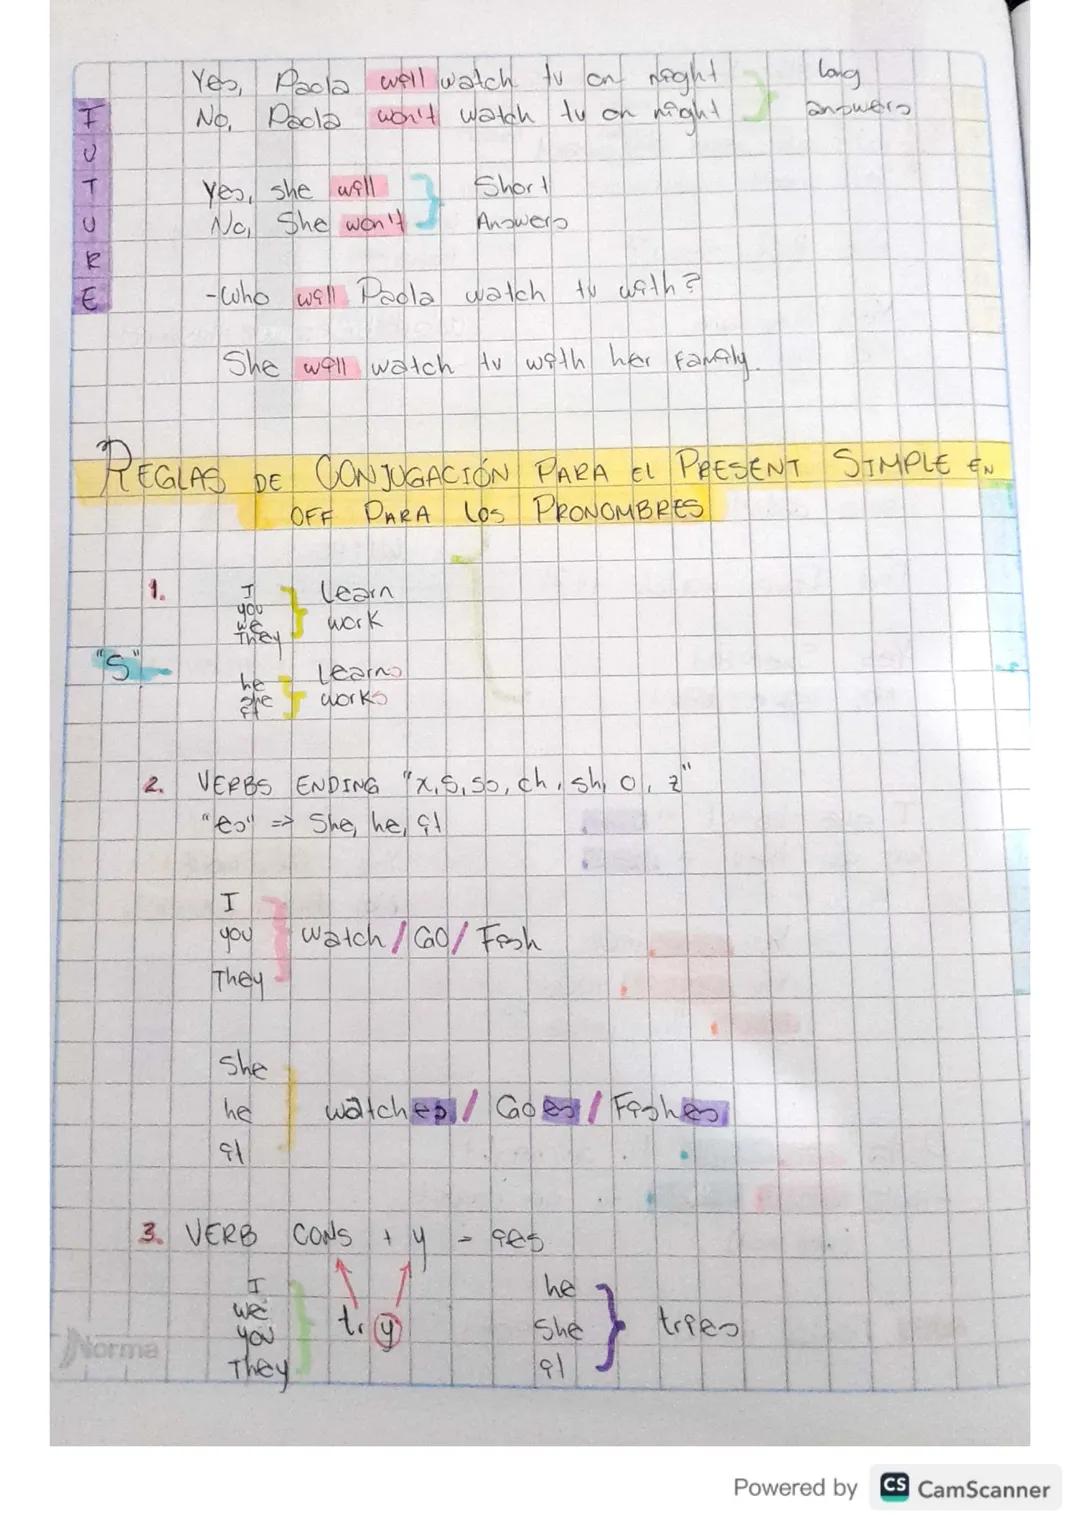 Yes, Paola will watch tv on night long
No, Paola won't watch tv on night answers
FUTURE
Yes, she will Short
No, She won't Answers
-Who will Paola watch tv with?
She will watch tv with her family.
REGLAS DE CONJUGACIÓN PARA EL PRESENT SIMPLE EN
OFF PARA LOS PRONOMBRES
1. I learn
you work
we
They
"S"
he learns
she works
it
2. VERBS ENDING "x, s, ss, ch, sh, o, z"
"es" => She, he, it
I
you watch / GO / Fish
They
She
he watches / Goes / Fishes
it
3. VERB CONS + y = ies
I he
we
you try She tries
They it
Norma
Powered by CS CamScanner